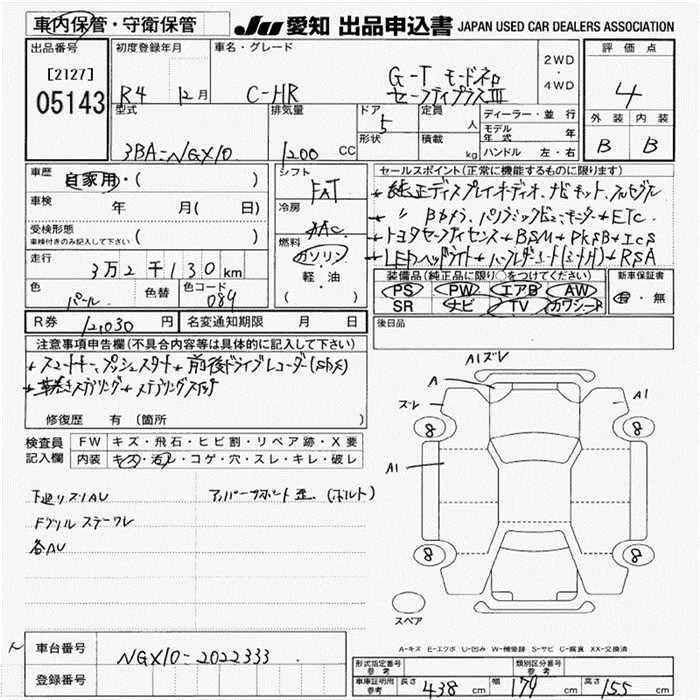 車内保管・守衛保管
JU 愛知 出品申込書 JAPAN USED CAR DEALERS ASSOCIATION
出品番号
[2127]
05143
初度登録年月
R4 12月
車名・グレード
C-HR
G-T モードネロ
セーフティプラスIII
2WD
・
4WD
評価点
4
外装 内装
B B
型式
3BA-NGX10
排気量
1200 cc
ドア
5
形状
定員
人
積載
kg
ディーラー・並行
モデル年式 年
ハンドル 左・右
車歴
自家用・( )
車検
年 月( 日)
受検形態
車検付きのみ記入して下さい ( )
走行
3万2千130km
色
パール
色替
色コード
089
R券 12,030 円
名変通知期限 月 日
シフト
FAT
冷房
AAC
燃料
ガソリン
・
軽・油
( )
セールスポイント(正常に機能するものに限ります)
純正ディスプレイオーディオ、ナビキット、フルセグル
〃 Bカメラ、パノラミックビューモーター ETC
トヨタセーフティセンス BSM PKSB ICS
LEDヘッドライト RSA
装備品(純正品に限り○をつけてください)
PS PW エアB AW
SR ナビ TV カワシート
新車保証書
有・無
後日品
注意事項申告欄(不具合内容等は具体的に記入して下さい)
スマートキー、プッシュスタート 前後ドライブレコーダー
革巻きステアリング ステアリングスイッチ
修復歴 有 〔箇所 〕
検査員記入欄
FW キズ・飛石・ヒビ割・リペア跡・X要
内装 キズ・汚レ・コゲ・穴・スレ・キレ・破レ
下廻リ
Fグリル
各AU
アッパーサポート 歪 (ボルト)
A1ズレ
A
ズレ
A1
A1
8
8
8
8
スペア
A-キズ E-エクボ U-凹み W-補修跡 S-サビ C-腐食 XX-交換済
車台番号 NGX10-2022333
登録番号
形式指定番号 参考
類別区分番号 参考
車庫証明用 参考 長さ 438 cm 幅 179 cm 高さ 155 cm